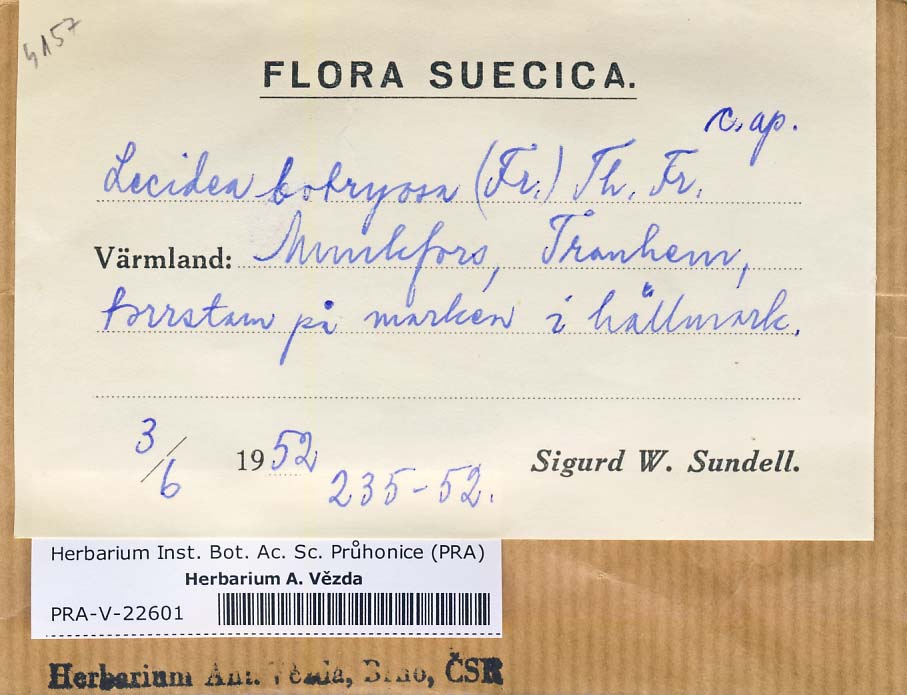 4157
FLORA SUECICA.
c. ap.
Lecidea botryosa (Fr.) Th. Fr.
Värmland: Munkfors, Tranhem,
torrstam på marken i hällmark.
3/6 1952 Sigurd W. Sundell.
235-52.
Herbarium Inst. Bot. Ac. Sc. Průhonice (PRA)
Herbarium A. Vězda
PRA-V-22601
Herbarium Ant. Vězda, Brno, ČSR